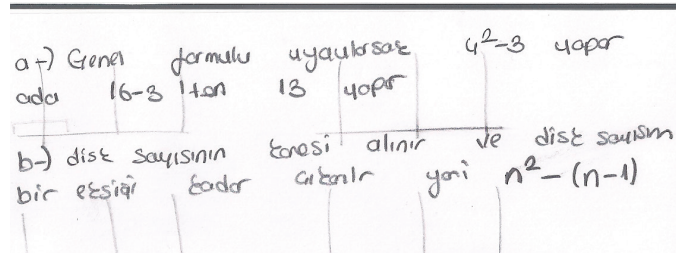 a-) Genel formulu uygularsak 4²-3 yapar
ada 16-3 ten 13 yapar
b-) disk sayısının karesi alınır ve disk sayısın
bir eksiği kadar çıkarılır yani n²-(n-1)